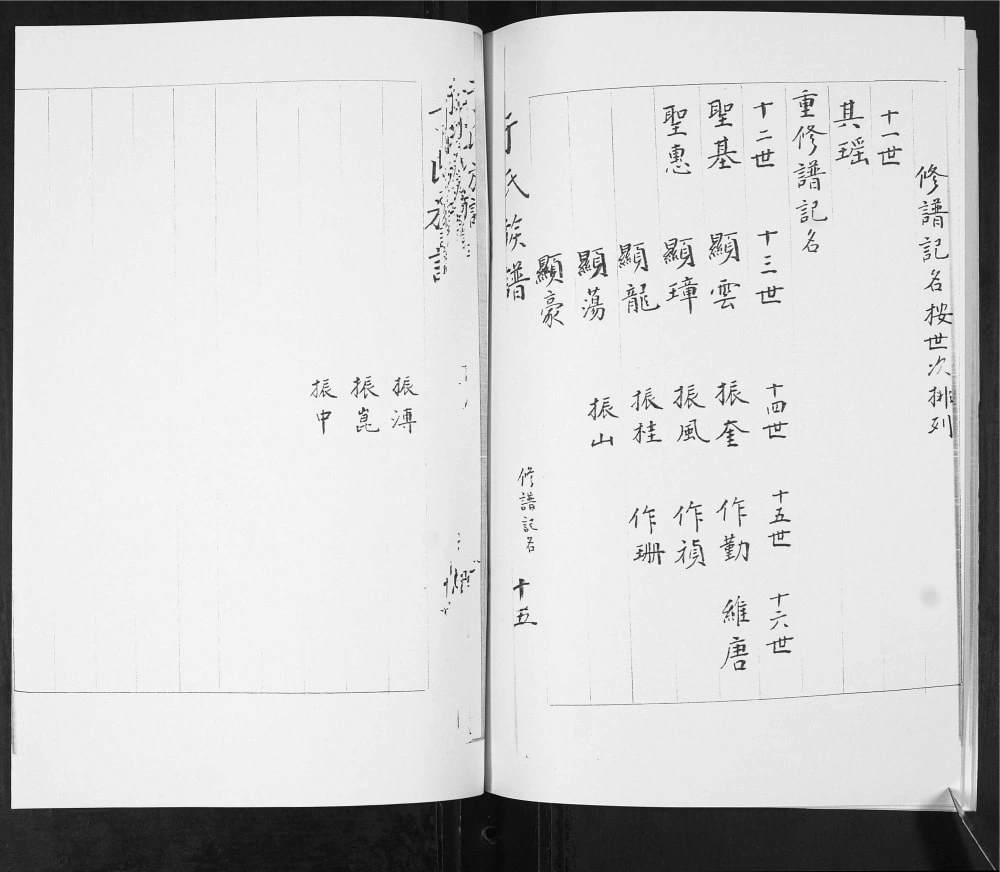 修譜記名按世次排列
十一世
其瑶
重修譜記名
十二世 十三世 十四世 十五世 十六世
聖基 顯雲 振奎 作勤 維唐
聖惠 顯璋 振風 作禎
顯龍 振桂 作珊
顯蕩 振山
顯豪
氏族譜 修譜記名 十五
振溥
振崑
振中